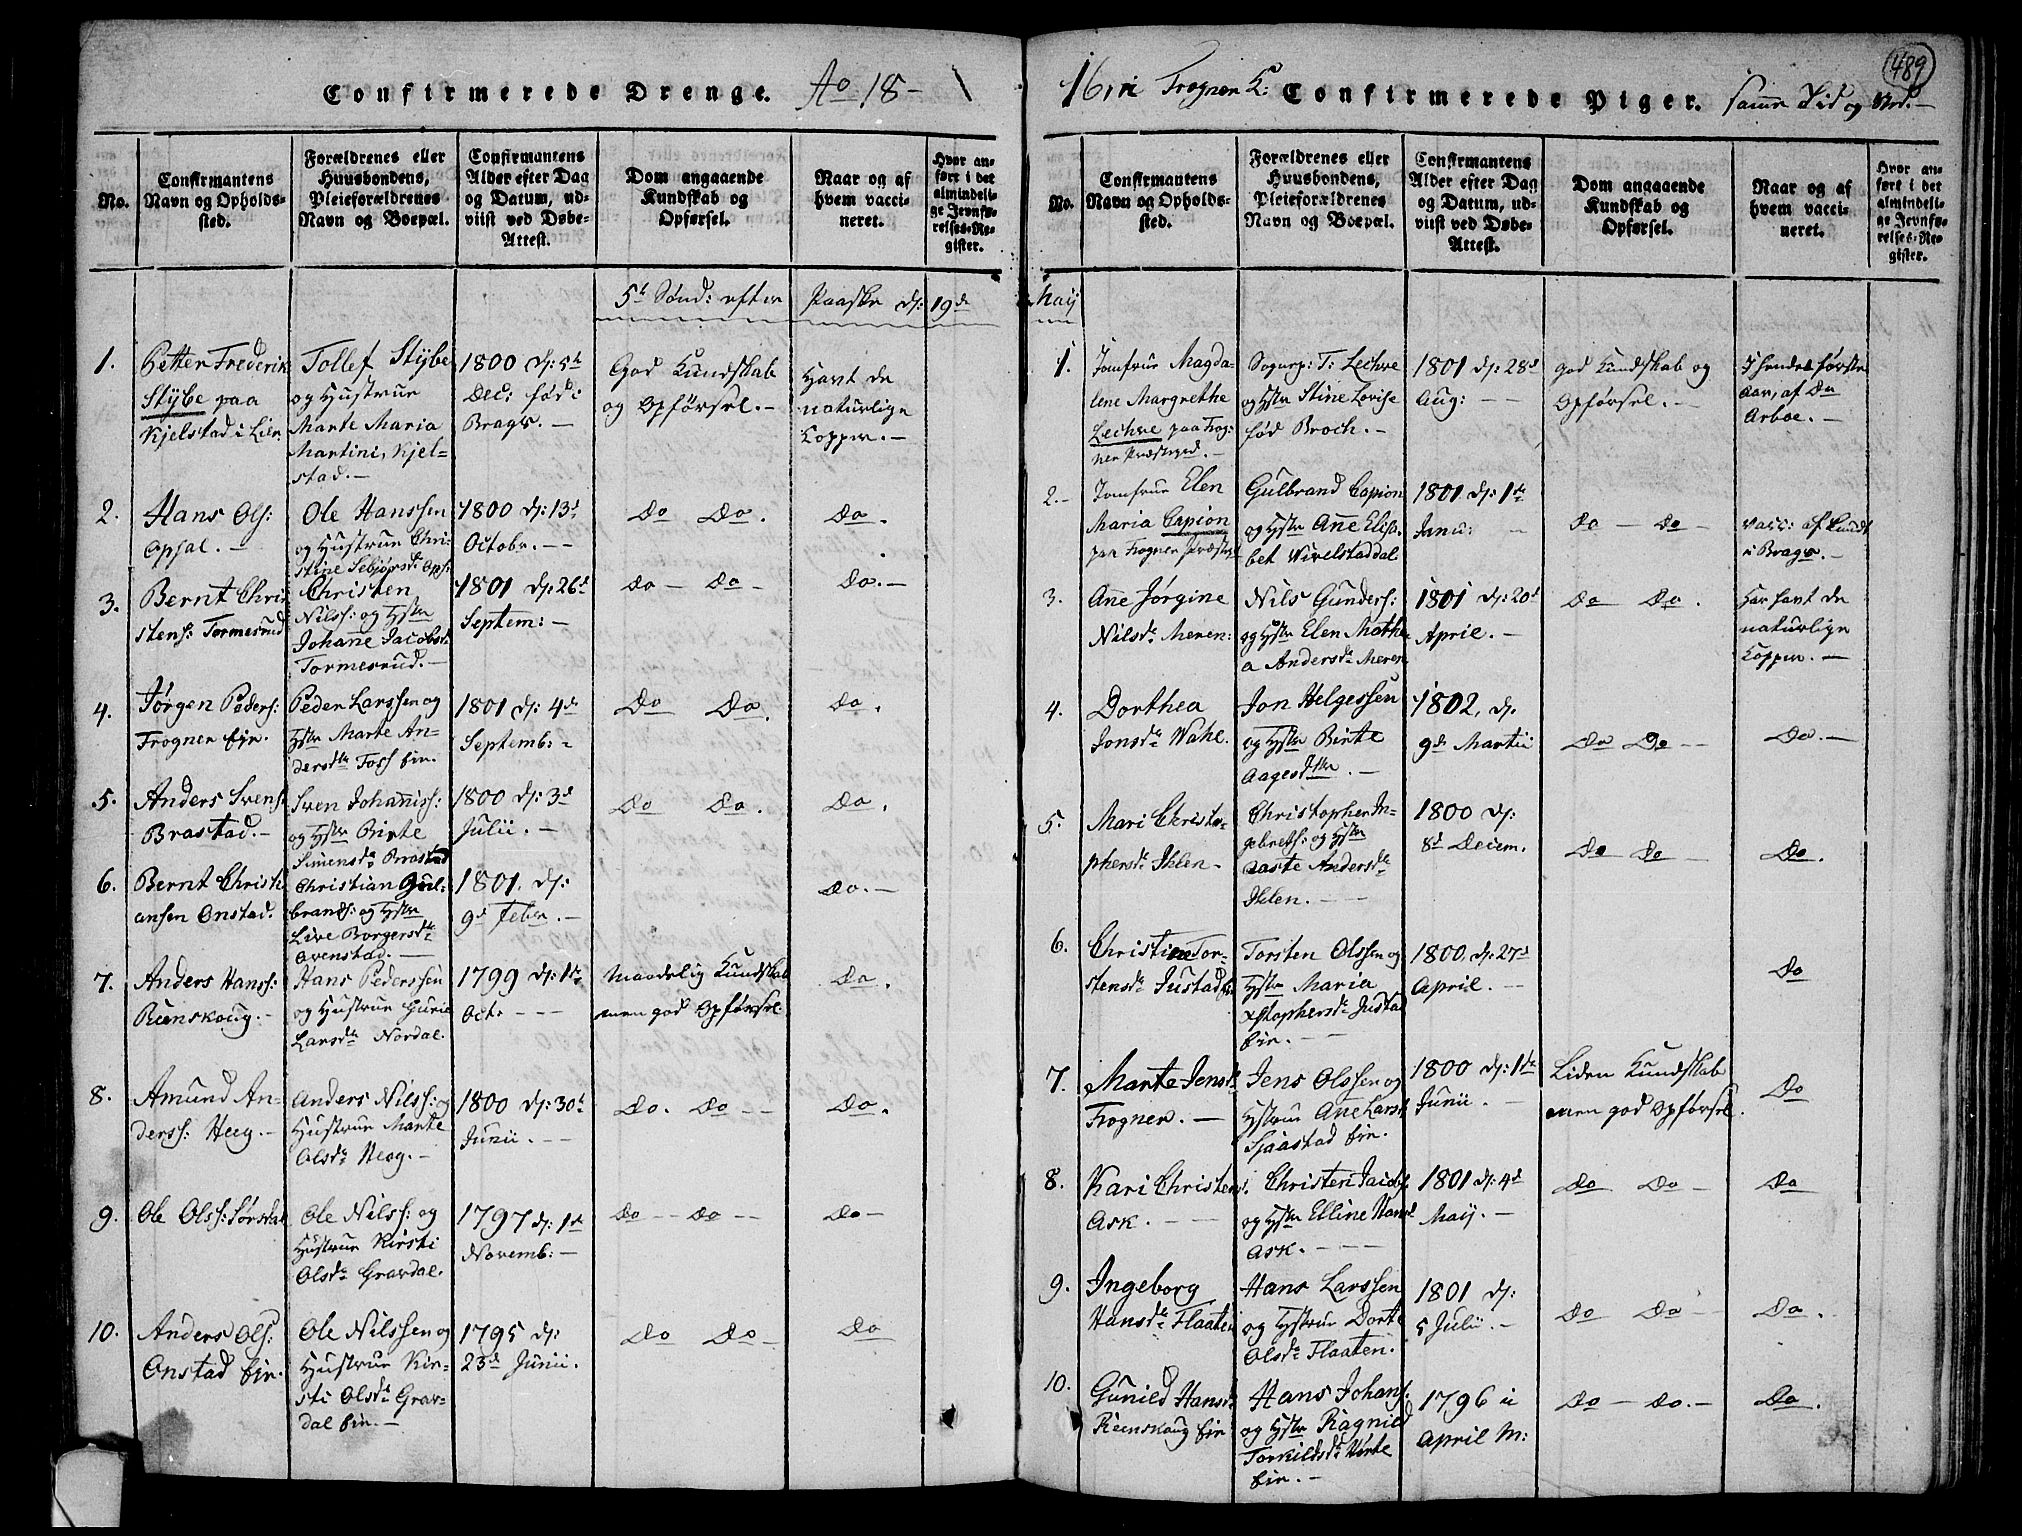 Confirmerede Drenge. Ao 18-
No.
Confirmantens
Navn og Opholds-
sted.
Forældrenes eller
Huusbondens,
Pleieforældrenes
Navn og Boepæl.
Confirmantens
Alder efter Dag
og Datum, ud-
viist ved Døbe-
Attest.
Dom angaaende
Kundskab og
Opførsel.
Naar og af
hvem vacci-
neret.
Hvor an-
ført i det
almindeli-
ge Jevnfø-
relses-Re-
gister.
5t Sønd: efter Paaske d: 19de
1.
Petter Frederik
Stybe paa
Kjelstad i Lier
Tollef Stybe
og Hustrue
Marte Maria
Martini, Kjel-
stad.-
1800 d: 5te
Dec: fød:
Brags.-
God Kundskab
og Opførsel.-
Havt de
naturlige
Kopper.-
2.
Hans Ols:
Opsal.-
Ole Hanssen
og Hustrue Chri-
stine Sebjørsd: Ops:
1800 d: 13d
Octobr.--
Do Do.
Do.
3.
Bernt Chri
stens: Tormesrud
Christen
Nilss: og Hstr
Johane Jacobsd
Tormesrud.-
1801 d: 26d
Septem:-
Do- Do-
Do.-
4.
Jørgen Peders:
Frogner Eie.
Peder Larssen og
Hstr Marte An-
dersdtr Foss Eie.
1801 d: 4de
Septemb:-
Do Do.
Do.
5.
Anders Svens:
Brastad.-
Sven Johaniss:
og Hstr Birte
Simensd: Brastad
1800 d: 3d
Julii.-
Do Do.
Do.
6.
Bernt Christi
ansen Onstad.
Christian Gul-
brands: og Hstr
Live Borgersdtr
Ovenstad.-
1801. d:
9d Febr.-
Do.-
7.
Anders Hanss:
Renskoug.-
Hans Pederssen
og Hustrue Gurie
Larsdtr Nordal.
1799 d: 1te
Octr---
Maadelig Kundskab
men god Opførsel.
Do.
8.
Amund An-
derss: Heeg.-
Anders Nilss: og
Hustrue Marte
Olsdtr Heog.-
1800 d: 30te
Junii.--
Do. Do--
Do.
9.
Ole Olss: Sørsdal
Ole Nilss: og
Hustrue Kirsti
Olsdtr Gravdal.
1797 d: 1te
Novemb:-
Do-- Do--
Do-
10.
Anders Ols:
Onstad Eie.
Ole Nilssen og
Hustrue Kir-
sti Olsdtr Grav-
dal Eie.-
1795 d:
23de Junii.
Do Do-
Do
16 in Frogner K: Confirmerede Piger. samme Tid og Sted.-
489
No.
Confirmantens
Navn og Opholds-
sted.
Forældrenes eller
Huusbondens,
Pleieforældrenes
Navn og Boepæl.
Confirmantens
Alder efter Dag
og Datum, ud-
viist ved Døbe-
Attest.
Dom angaaende
Kundskab og
Opførsel.
Naar og af
hvem vacci-
neret.
Hvor an-
ført i det
almindeli-
ge Jevnfø-
relses-Re-
gister.
Maij
1.
Jomfrue Magda-
lene Margrethe
Lechve paa Frog-
ner Præstegd.-
Sognep: T: Lechve
og Hstr Stine Lovise
fød Broch.-
1801 d: 28d
Aug:--
God Kundskab og
Opførsel.-
I hendes første
Aar, af Dn
Arboe.-
2.-
Jomfrue Elen
Maria Capion
paa Frogner Præstegd
Gulbrand Capion
og Hstr Ane Elisa-
bet Wivelstaddal.
1801 d: 1te
Janu:-
Do- Do-
vacc: af Lundt
i Brags.-
3.
Ane Jørgine
Nilsdtr Meren:
Nils Gunders:
og Hstr Elen Mathe
a Andersdtr Meren
1801 d: 20d
April.-
Do Do.
Har havt de
naturlige
Kopper.-
4.
Dorthea
Jonsdtr Wahl.
Jon Helgessen
og Hstr Birte
Aagesdtr.-
1802, d.
9de Martii
Do Do--
Do.-
5.
Mari Christo-
phersdtr Ihlen-
Christopher In-
gebretss: og Hstr
Aaste Andersdtr
Ihlen.--
1800 d:
8d Decem.
Do Do-
Do.
6.
Christine Tor-
stensdtr Justad Eie
Torsten Olssen og
Hstr Maria
Xstophersdtr Justad
Eie.--
1800. d: 27d
April.-
Do
7.
Marte Jensdtr
Frogner.-
Jens Olssen og
Hstrue Ane Larsd
Sjaastad Eie.
1800 d: 1te
Junii.-
Liden Kundskab
men god Opførsel.
Do
8.
Kari Christensd.
Ask.--
Christen Jacobs:
og Hstr Elline Hansd
Ask.---
1801 d: 4d
Maij.-
Do Do-
Do
9.
Ingeborg
Hansdtr Flaaten
Hans Larssen
og Hstrue Dorte
Olsdtr Flaaten.
1801 d:
5 Julii.-
Do Do--
Do.
10.
Gunild Hansd
Reenskoug Eie
Hans Johans:
og Hstr Ragnild
Torkildsdtr Hørte
Eie.-
1796 i
April M:
Do- Do.-
Do.